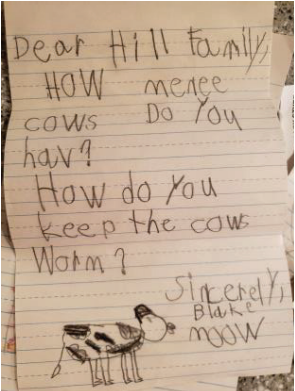 Dear Hill Family,
HOW menee
cows Do You
hav?
How do You
keep the cows
Worm?
Sincerely,
Blake
moow